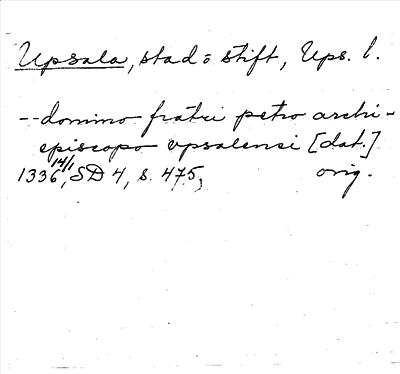 Upsala, stad o stift, Ups. l.
-- domino fratri petro archi-
episcopo vpsalensi [dat.]
1336 14/1, SD 4, s. 475, orig.